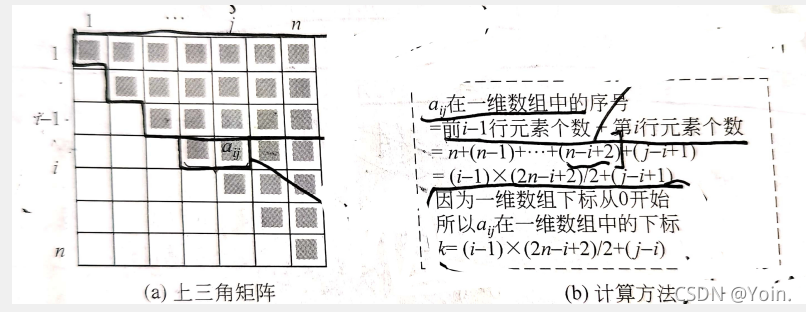 1 … j n
1
i-1
i
n
a_ij
(a) 上三角矩阵
a_ij在一维数组中的序号
=前i-1行元素个数+第i行元素个数
= n+(n-1)+…+(n-i+2)+(j-i+1)
= (i-1)×(2n-i+2)/2+(j-i+1)
因为一维数组下标从0开始
所以a_ij在一维数组中的下标
k= (i-1)×(2n-i+2)/2+(j-i)
(b) 计算方法
CSDN @Yoin.